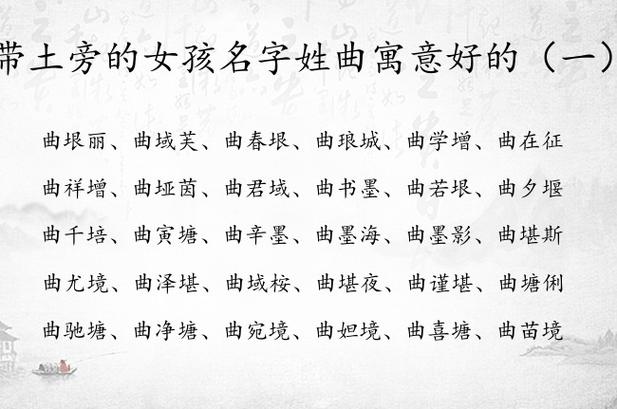 带土旁的女孩名字姓曲寓意好的（一）
曲垠丽、曲域芙、曲春垠、曲琅城、曲学增、曲在征
曲祥增、曲垭茵、曲君域、曲书墨、曲若垠、曲夕堰
曲千培、曲寅塘、曲辛墨、曲墨海、曲墨影、曲堪斯
曲尤境、曲泽堪、曲域桉、曲堪夜、曲谨堪、曲塘俐
曲驰塘、曲净塘、曲宛境、曲妲境、曲喜塘、曲苗境